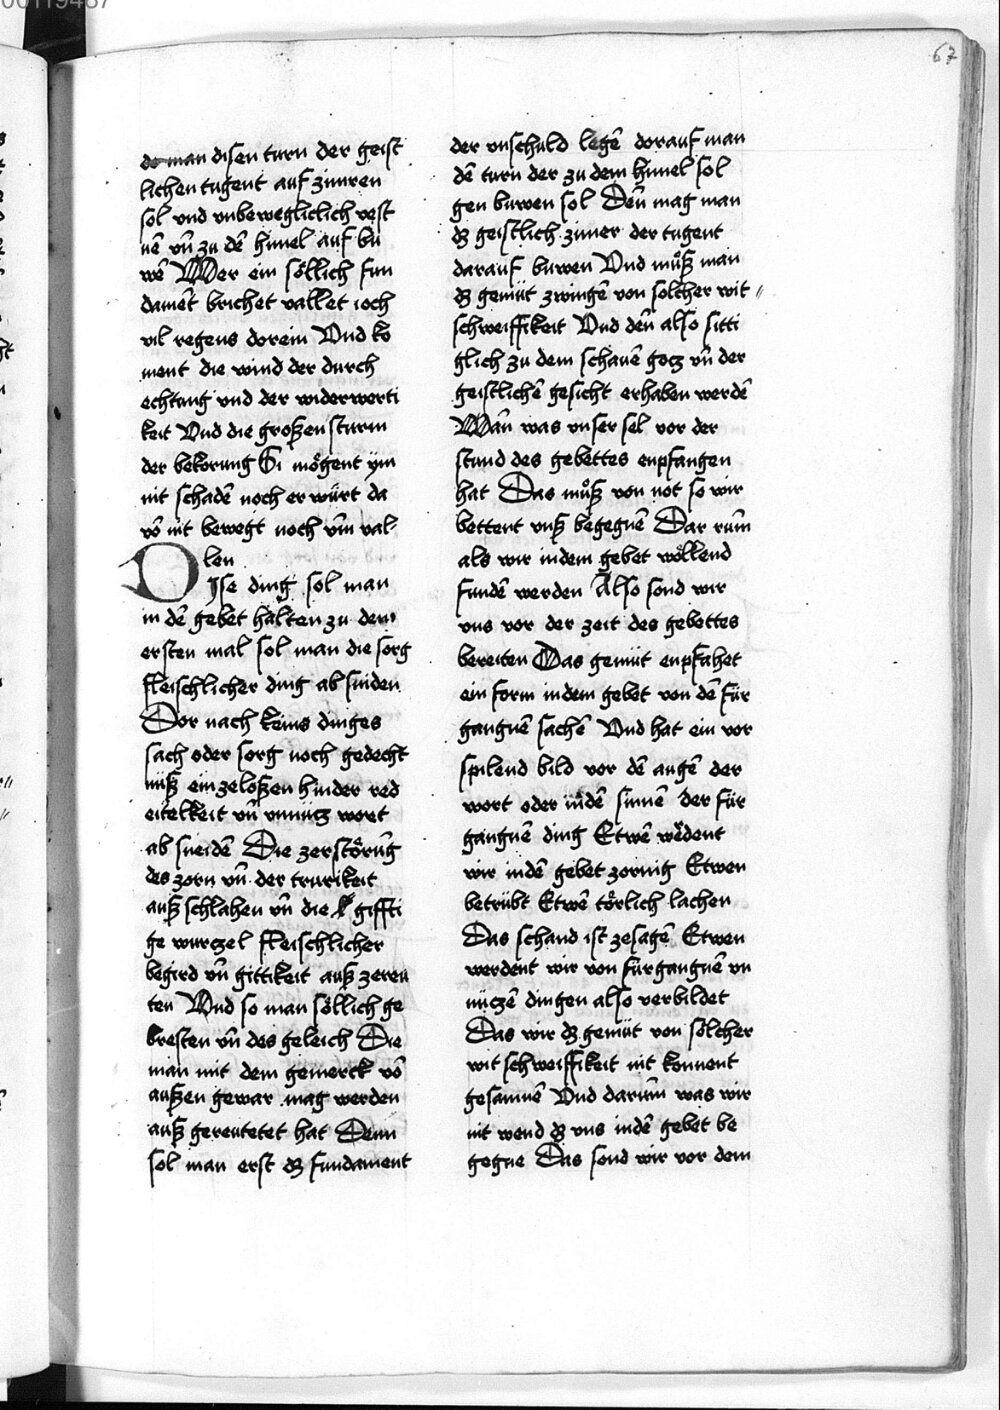 00119487
67
do man disen turn der geist
lichen tugent auf zimren
sol vnd vnbeweglich vest
nē vn̄ zu dē himel auf bu
wē Wer ein söllich fun
damēt brichet vallet ioch
vil regens dorein Vnd ko
ment die wind der durch
echtung vnd der widerwerti
keit Vnd die großen sturm
der bekorung Si mögent ym
nit schadē noch er würt da
vō nit bewegt noch vm̄ val
len
DJse ding sol man
in dē gebet halten zu dem
ersten mal sol man die sorg
fleischlicher ding ab sniden
Dor nach keins dinges
sach oder sorg noch gedecht
nüß ein zeloßen hinder red
eitelkeit vn̄ vnnücz wort
ab sneidē Die zerstörūg
des zorn vn̄ der trurikeit
auß schlahen vn̄ die giffti
ge wurczel fleischlicher
begird vn̄ gittikeit auß zereu
ten Vnd so man söllich ge
bresten vn̄ des geleich Die
man mit dem gemerck vō
außen gewar mag werden
auß gereutetet hat Denn
sol man erst dz fundament
der vnschuld legē dorauf man
dē turn der zu dem himel sol
gen buwen sol Den̄ mag man
dz geistlich zimer der tugent
darauf buwen Vnd müß man
dz gemüt zwingē von solcher wit
schweiffikeit Vnd den̄ also sitti
glich zu dem schauē gocz vn̄ der
geistlichē gesicht erhaben werdē
Wan̄ was vnser sel vor der
stund des gebettes enpfangen
hat Das müß von not so wir
bettent vnß begegnē Dar rum̄
als wir indem gebet wöllend
fundē werden Also sond wir
vns vor der zeit des gebettes
bereiten Das gemüt enpfahet
ein form indem gebet von dē für
gangnē sachē Vnd hat ein vor
spilend bild vor dē augē der
wort oder indē sinnē der für
gangnē ding Etwē wēdent
wir indē gebet zornig Etwen
betrübt Etwē törlich lachen
Das schand ist zesagē Etwen
werdent wir von fürgangnē vn
nüczē dingen also verbildet
Das wir dz gemüt von sölcher
wit schweiffikeit nit konnent
gesamnē Vnd darum̄ was wir
nit wend dz vns indē gebet be
gegne Das sond wir vor dem